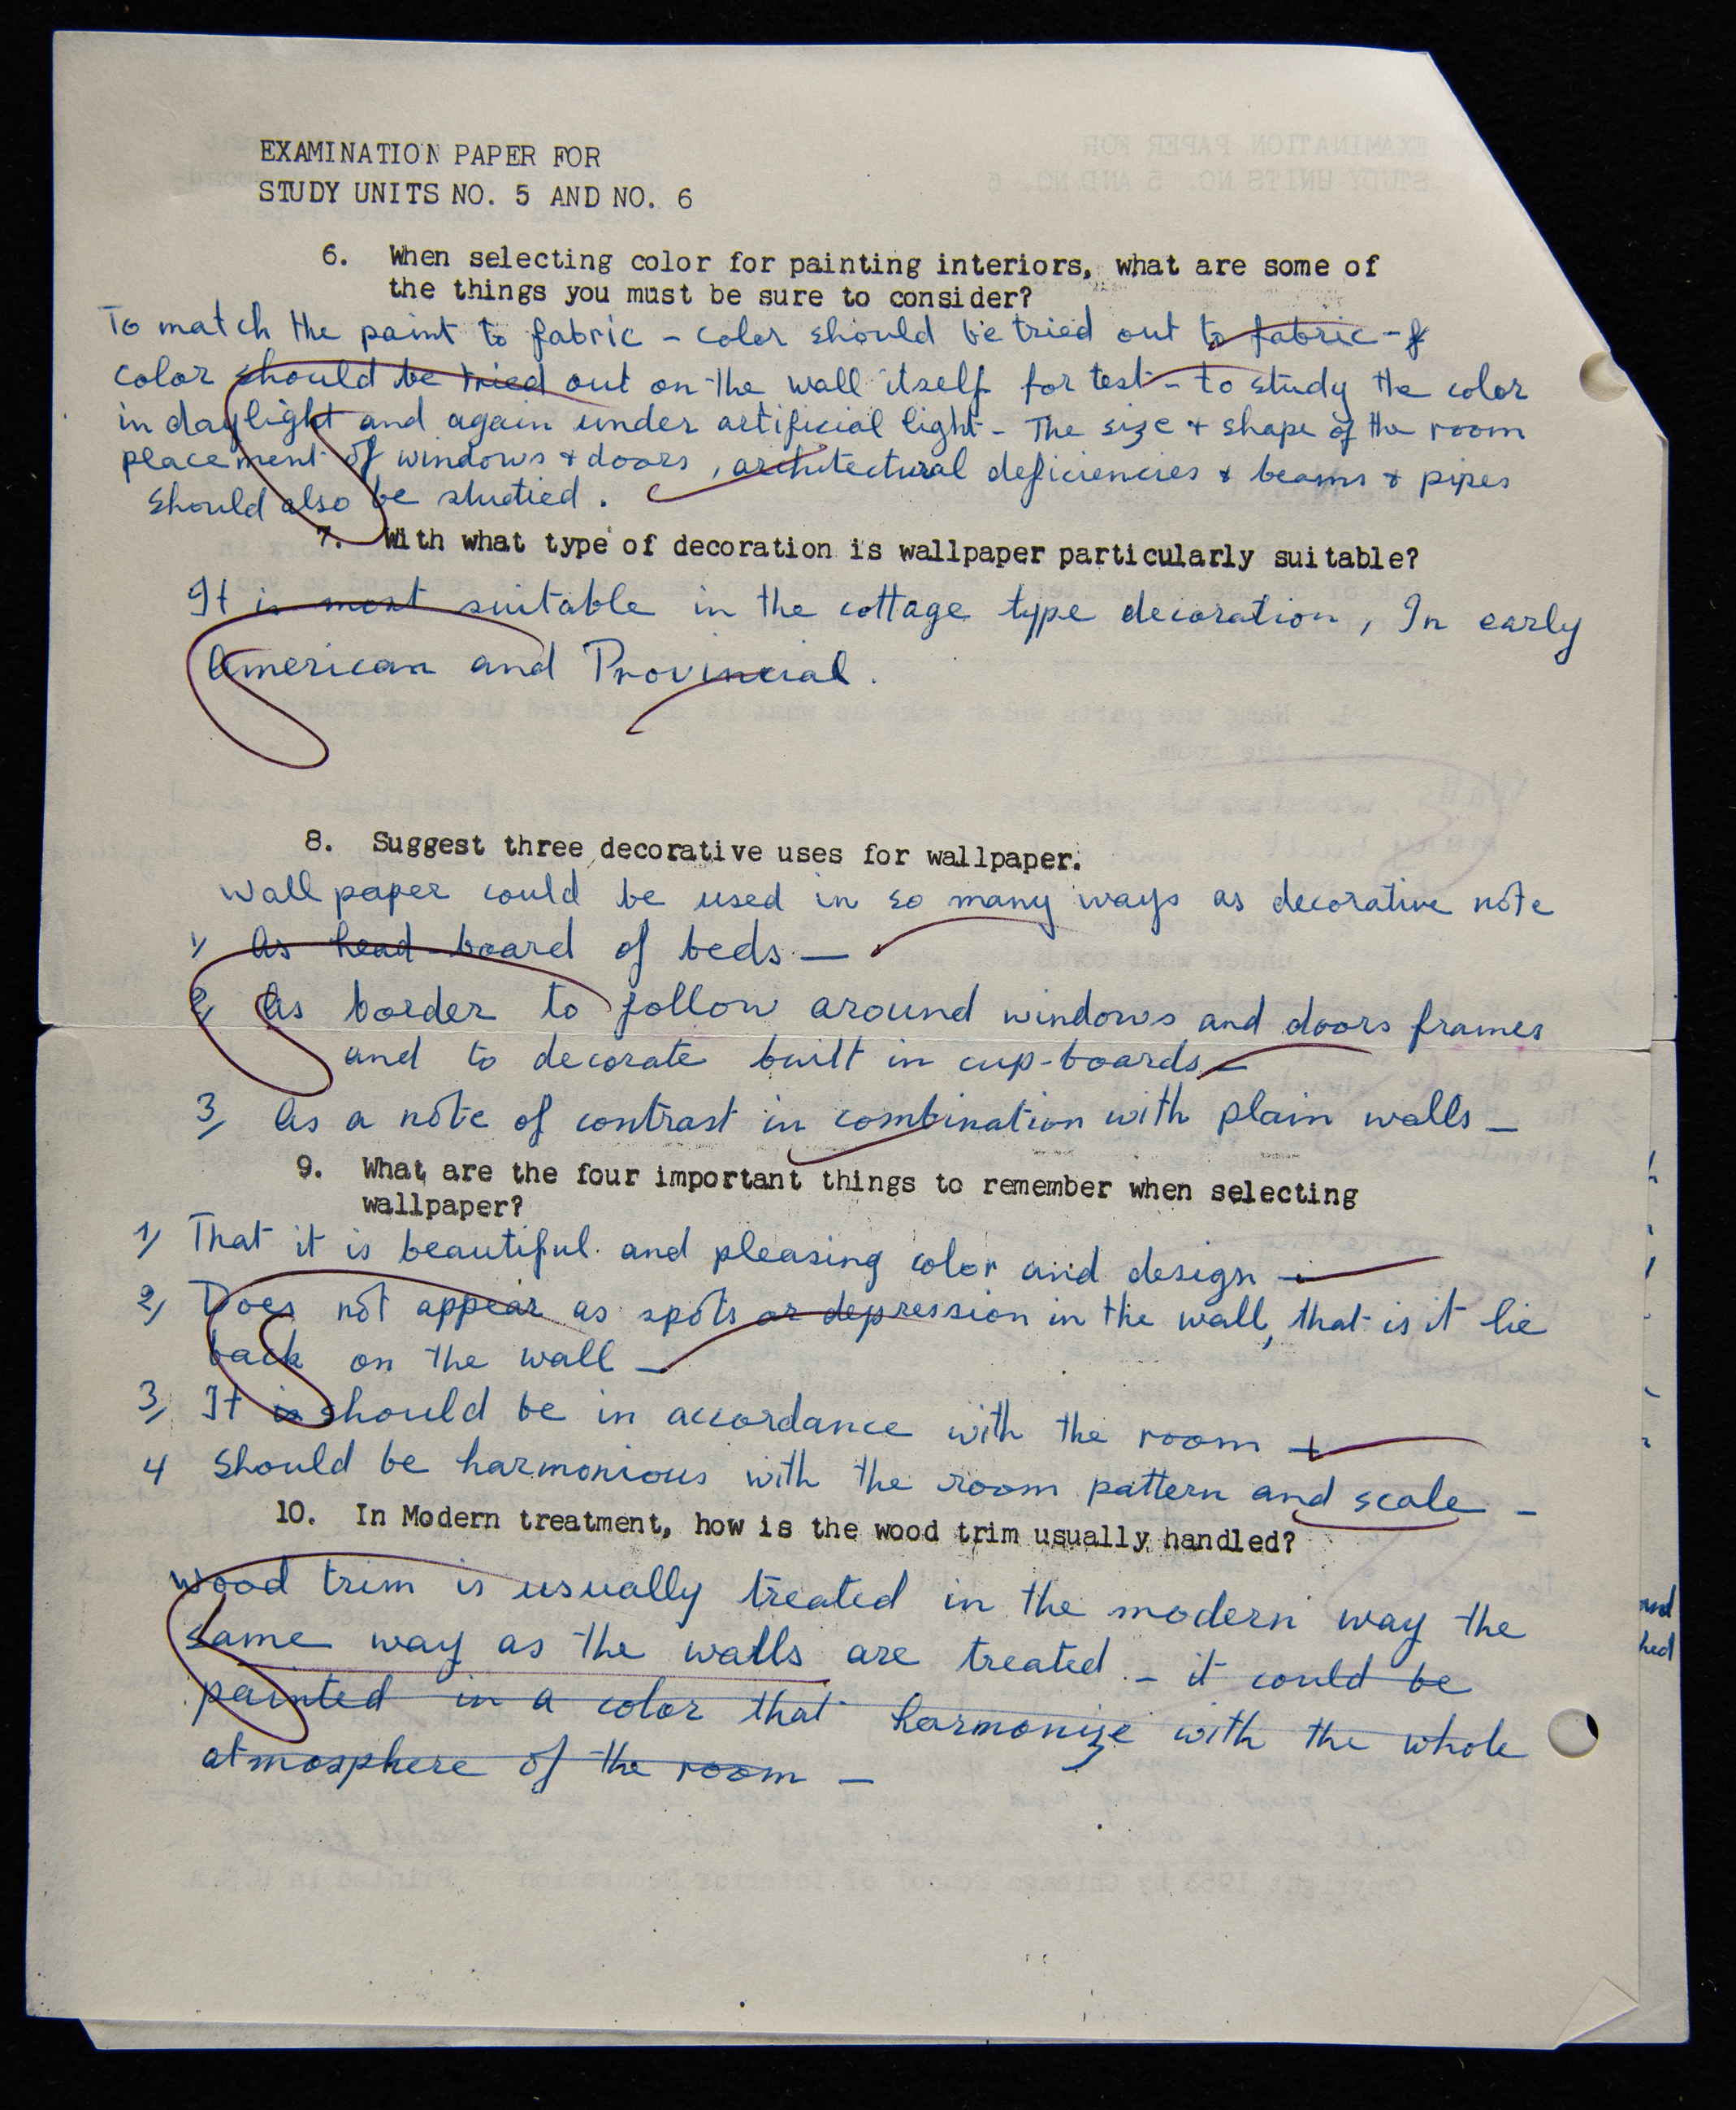 EXAMINATION PAPER FOR
STUDY UNITS NO. 5 AND NO. 6
6. When selecting color for painting interiors, what are some of
the things you must be sure to consider?
To match the paint to fabric - color should be tried out to fabric -
color should be tried out on the wall itself for test - to study the color
in daylight and again under artificial light - The size + shape of the room
placement of windows + doors, architectural deficiencies & beams & pipes
should also be studied.
7. With what type of decoration is wallpaper particularly suitable?
It is most suitable in the cottage type decoration, In early
American and Provincial.
8. Suggest three decorative uses for wallpaper.
Wall paper could be used in so many ways as decorative note
1) As head board of beds —
2) As border to follow around windows and doors frames
and to decorate built in cup-boards —
3) As a note of contrast in combination with plain walls —
9. What are the four important things to remember when selecting
wallpaper?
1) That it is beautiful and pleasing color and design —
2) Does not appear as spots or depression in the wall, that is it lie
back on the wall —
3) It is should be in accordance with the room —
4 Should be harmonious with the room pattern and scale —
10. In Modern treatment, how is the wood trim usually handled?
Wood trim is usually treated in the modern way the
same way as the walls are treated. - it could be
painted in a color that harmonize with the whole
atmosphere of the room —
and
hed